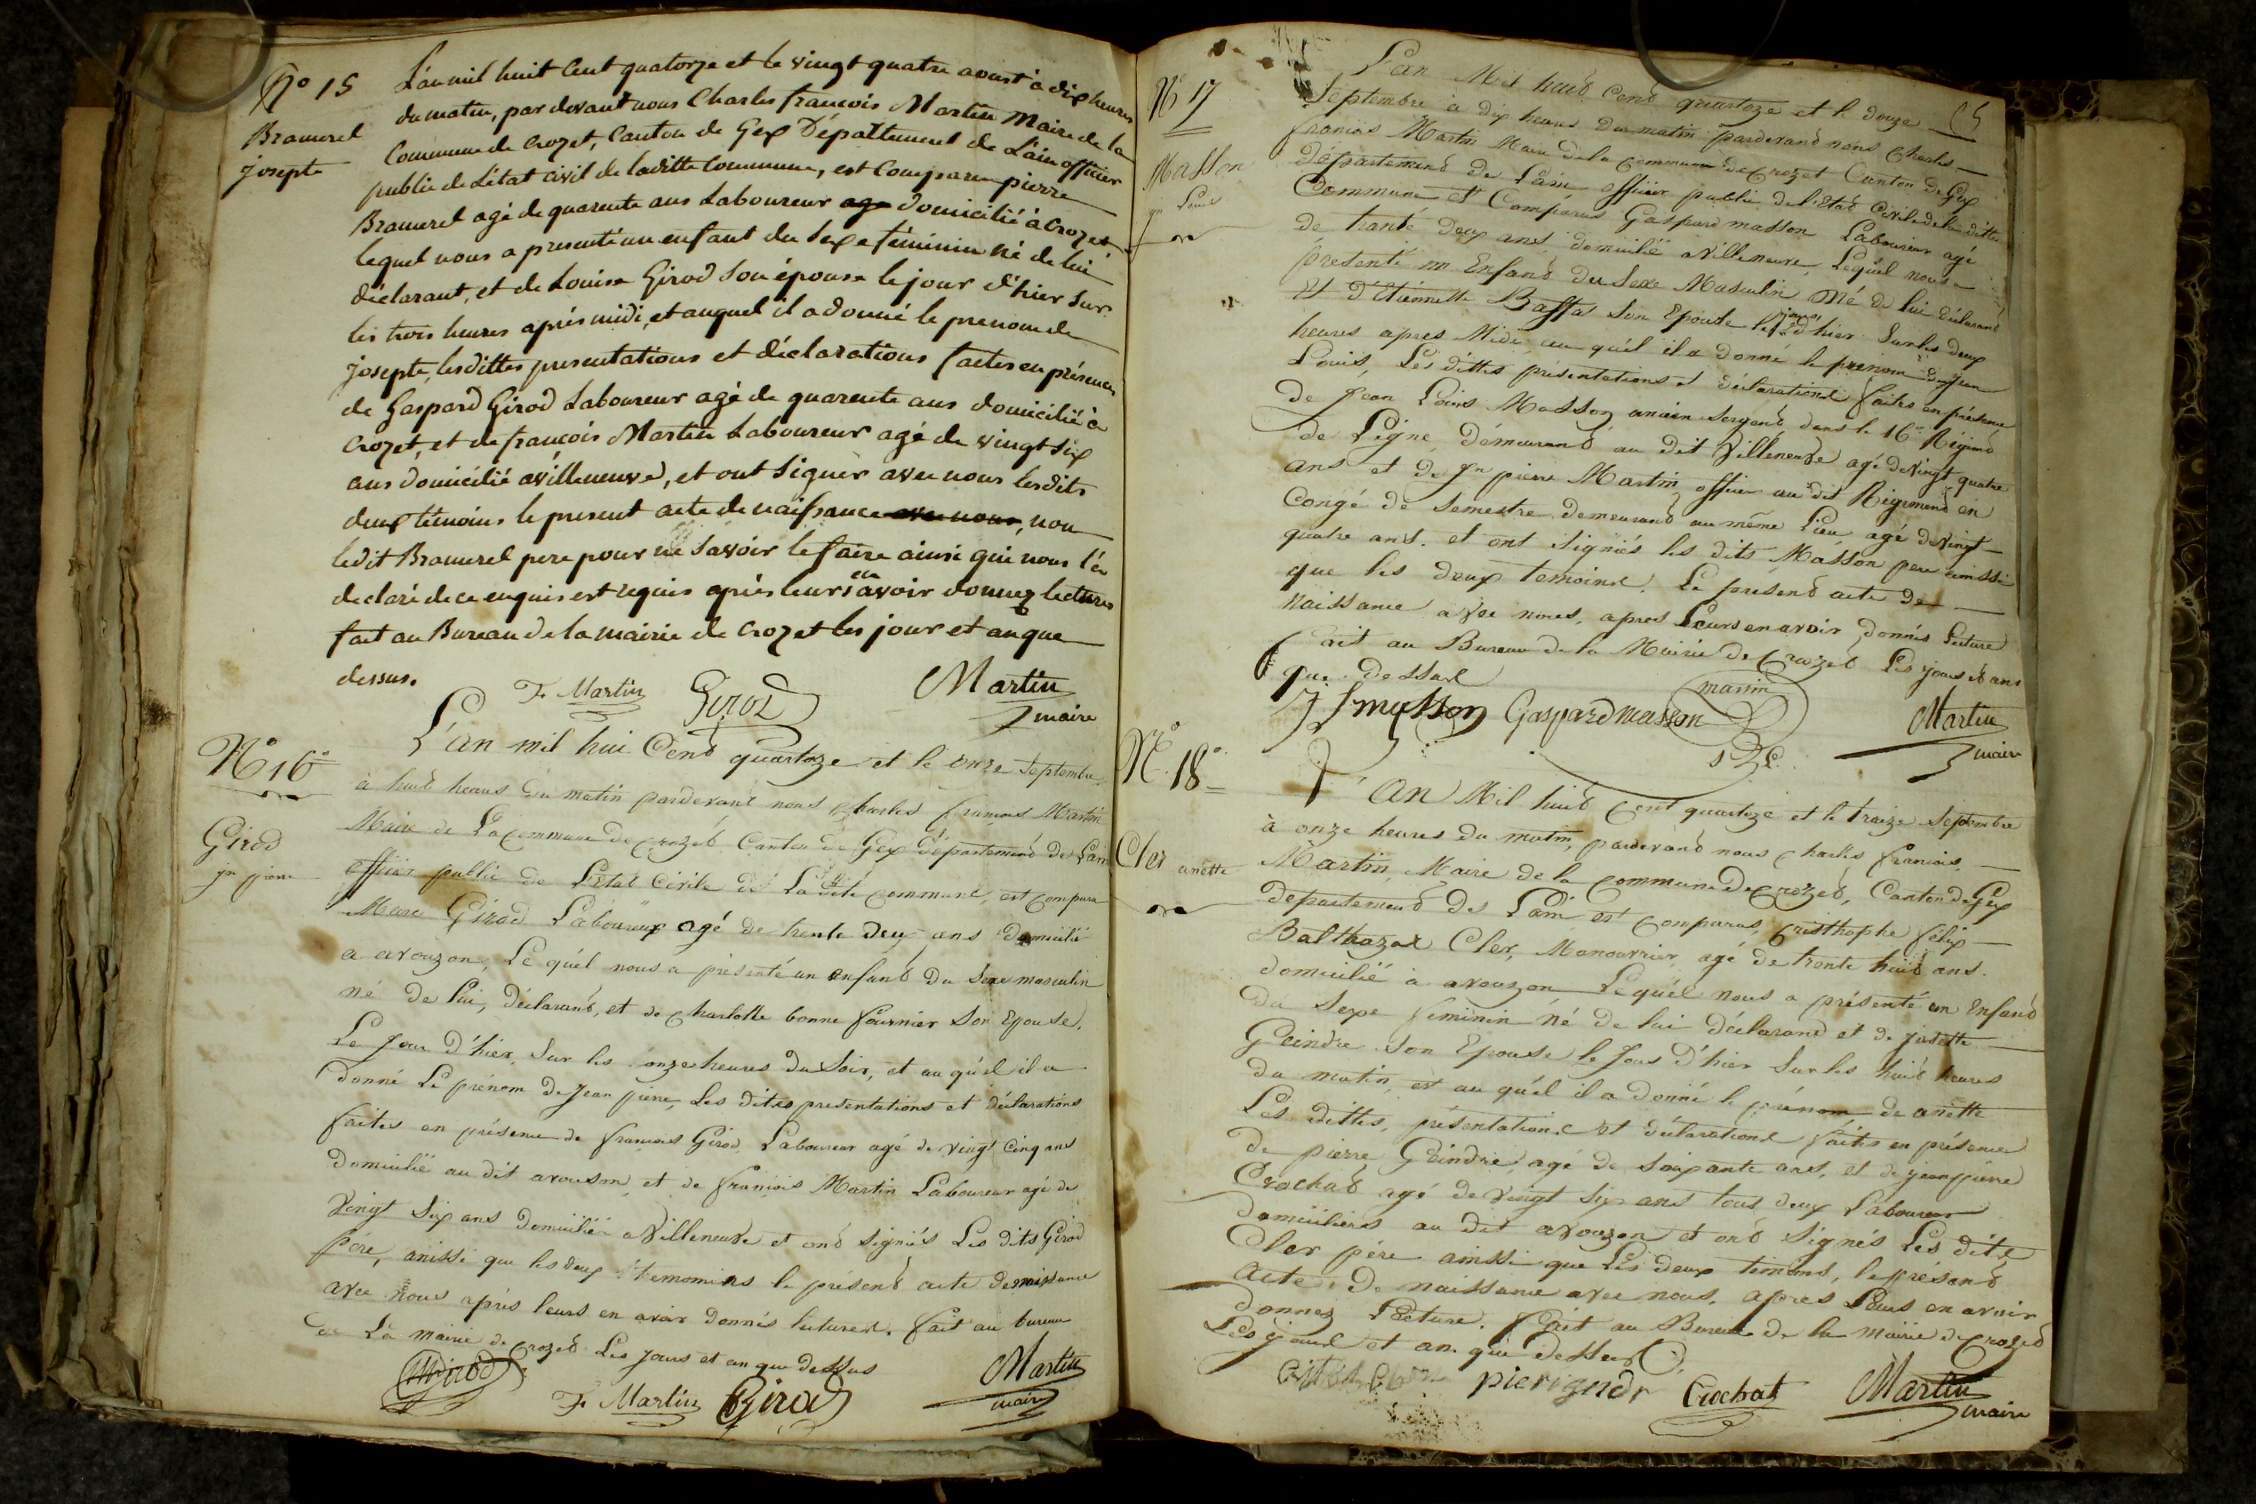 N° 15
Bramerel
josepte
L'an mil huit Cent quatorze et le vingt quatre aoust à dix heures
du matin, par devant nous Charles françois Martin Maire de la
Commune de Crozet, Canton de Gex Département de L'ain officier
public de L'état civil de laditte Commune, est Comparu pierre
Bramerel agé de quarente ans Laboureur age domicilié à Crozet
lequel nous a presenté un enfant du Sexe féminin né de lui
déclarant, et de Louise Girod Son épouse le jour d'hier Sur
les trois heures après midi, et auquel il a donné le prenom de
josepte, lesdittes presentations et déclarations faites en présence
de Gaspard Girod Laboureur agé de quarente ans domicilié à
Crozet, et de françois Martin Laboureur agé de vingt Six
ans domicilié avilleneuve, et ont Signér avec nous lesdits
deux témoins le present acte de naissance avec nous, non
ledit Bramerel pere pour ne Savoir le faire ainsi que nous l'a
declaré de ce enquis est requis après leurs en avoir donnez lectures
fait au Bureau de la mairie de Crozet les jour et an que
dessus.
F. Martin Girod Martin
maire
N° 16
Girod
jn pierre
L'an mil hui Cend quartoze et le onze Septembre
à huid heures du matin pardevant nous Charles françois Martin
Maire de La Commune de Crozet Canton de Gex département de Lain
officier public de L'Etat Civile de La ditte Commune, est Comparu
Marc Girod Laboureux agé de trente deux ans domicilié
a avouzon, Le quél nous a présenté un enfand du Sexe masculin
né de lui, déclarand, et de Charlotte bonne fournier Son Epouse.
Le Jour d'hier Sur les onze heures du Soir, et au quél il a
donné Le prénom de Jean pierre, Les dites presentations et déclarations
faites en présence de françois Girod Laboureur agé de vingt Cinq ans
domicilié au dit avouson et de françois Martin Laboureur agé de
Vingt Six ans domicilié a Villeneuve et ond signiés Les dits Girod
pére, anissi que les deux temomins le présend acte de naissance
avec nous aprés leurs en avoir donnés lectures. fait au bureau
de La mairie de Crozed Les Jours et an que dessus
MGirod F. Martin Girod Martin
maire
15
N° 17
Masson
jn Louis
L'an Mil huid Cend quartoze et le douze
Septembre à dix heures du matin pardevand nous Charles
françois Martin Maire de la Commune de Crozet Canton de Gex
département de Lain officier public de l'Etad Civile de la ditte
Commune et Comparus Gaspard masson Laboureur agé
de trante deux ans domicilié a Villeneuve, Lequél nous a
présenté un Enfand du Sexe Masculin Né de lui déclarand
Et d'Etiennette Baffas Son Epouse le jour d'hier Sur les deux
heures apres Midi au quél il a donné le prenom de Jean
Louis, Les dittes présentations et déclarations faites en présence
de Jean Louis Masson ancien Sergend dans le 16e Régimend
de Ligne démeurand au dit Villeneuve agé de vingt quatre
ans et de Jn pierre Martin officier au dit Régimend en
Congé de Semestre demeurand au même Lieu agé de vingt
quatre ans. et ont signiés les dits Masson pere ainssi
que les deux temoins. Le presend acte de
Naissance avec nous, apres Leurs en avoir donnés Lecture
fait au Bureau de la Mairie de Crozed Les jours et ans
que dessus
J L masson Gaspard masson martin Martin
maire
N° 18
Cler anette
L'an Mil huid Cent quartoze et le traize Septembre
à onze heures du matin, pardevand nous Charles françois
Martin, Maire de la Commune de Crozed, Canton de Gex
département de Lain est Comparus, Cristhophe félix
Balthazar Cler, Manouvrier agé de trente huid ans.
domicilié à avouzon Le quél nous a présenté un Enfand
du Sexe feminin né de lui déclarand et de josette
Geindre Son Epouse le Jour d'hier Sur les huid heures
du matin, est au quél il a donné le prénom de anette
Les dittes, présentations et déclarations faites en présence
de pierre Geindre, agé de Soixante ans, et de jean pierre
Crochad agé de vingt six ans tous deux Laboureur
domiciliers au dit avouzon et ond Signés Les dits
Cler pére ainssi que Les deux timoins, le présand
acte, de naissance avec nous. apres Leurs en avoir
donnez Lecture. fait au Bureau de la Mairie de Crozed
Les jours et an. que dessus
pier Crochat Martin
maire